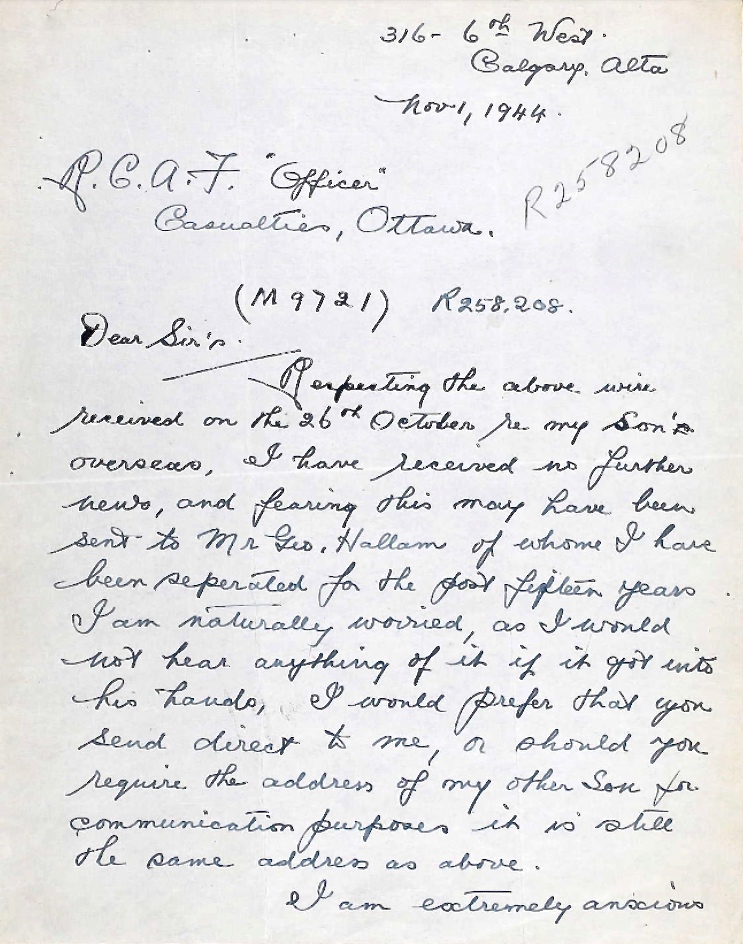 316- 6th West.
Calgary. Alta
Nov 1, 1944.
R258208
R.C.A.F. "Officer"
Casualties, Ottawa.
(M9721) R258.208.
Dear Sir's.
Respecting the above wire
received on the 26th October re my Son's
overseas, I have received no further
news, and fearing this may have been
sent to Mr Geo. Hallam of whome I have
been seperated for the past fifteen years
I am naturally worried, as I would
not hear anything of it if it got into
his hands, I would prefer that you
send direct to me, or should you
require the address of my other Son for
communication purposes it is still
the same address as above.
I am extremely anxious